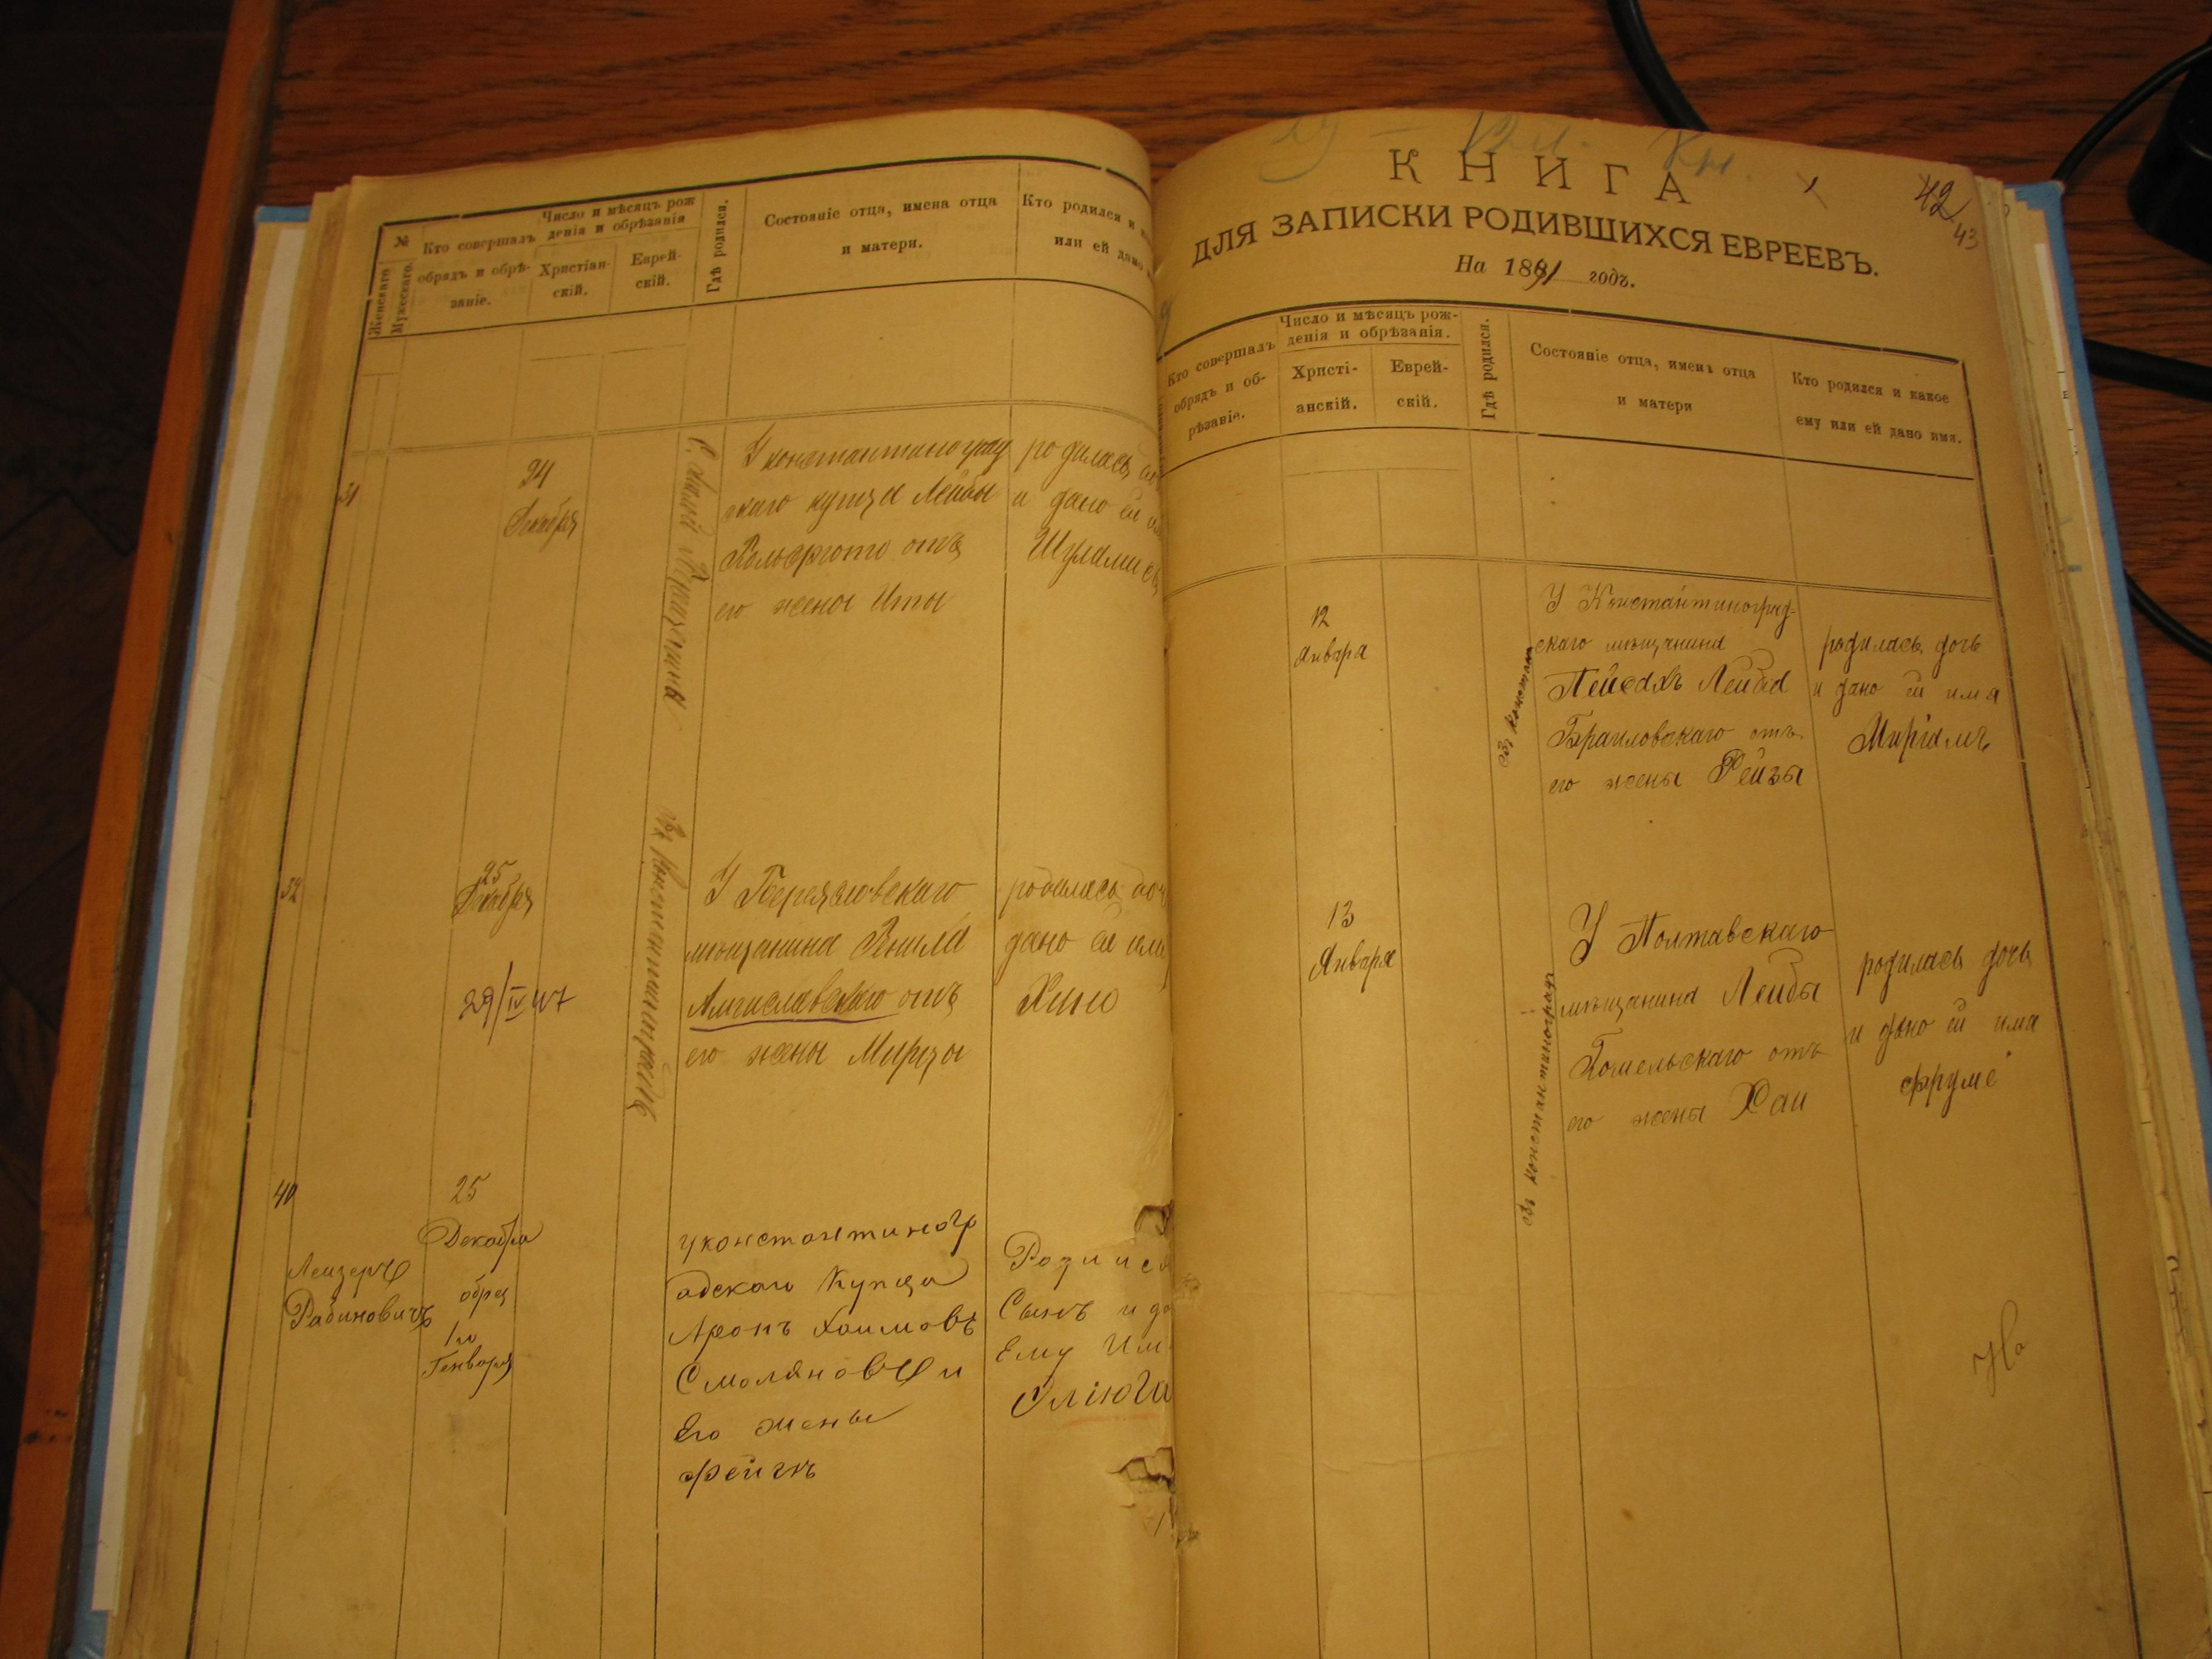 №
Женскаго
Мужескаго.
Кто совершалъ
обрядъ и обрѣ-
заніе.
Число и мѣсяцъ рож
денія и обрѣзанія
Христіан-
скій.
Еврей-
скій.
Гдѣ родился.
Состояніе отца, имена отца
и матери.
Кто родился и
или ей дано
31
24
Декабря
У константиноград
скаго купца Лейбы
отъ
его жены Иты
родилась
и дано ей
32
25
Декабря
29/IV 47
въ Константиноградѣ
У
мѣщанина
отъ
его жены Мирцы
родилась доч
дано ей имя
40
Лейзеръ
Рабиновичъ
25
Декабря
обрез
1го
Генваря
у константиногр
адскаго Купца
Аронъ Хаимовъ
Смоляновъ и
Его жены
Фейгъ
Родился
Сынъ и да
Ему Им
КНИГА
ДЛЯ ЗАПИСКИ РОДИВШИХСЯ ЕВРЕЕВЪ.
На 1891 годъ.
42
43
Кто совершалъ
обрядъ и об-
рѣзаніе.
Число и мѣсяцъ рож-
денія и обрѣзанія.
Христі-
анскій.
Еврей-
скій.
Гдѣ родился.
Состояніе отца, имена отца
и матери
Кто родился и какое
ему или ей дано имя.
12
Января
въ констан
У Константиноград-
скаго мѣщанина
Пейсахъ Лейба
Браиловскаго отъ
его жены Рейзы
родилась дочь
и дано ей имя
Миріамъ
13
Января
въ константиноградѣ
У Полтавскаго
мѣщанина Лейбы
Гомельскаго отъ
его жены Хаи
родилась дочь
и дано ей имя
Фруме
На